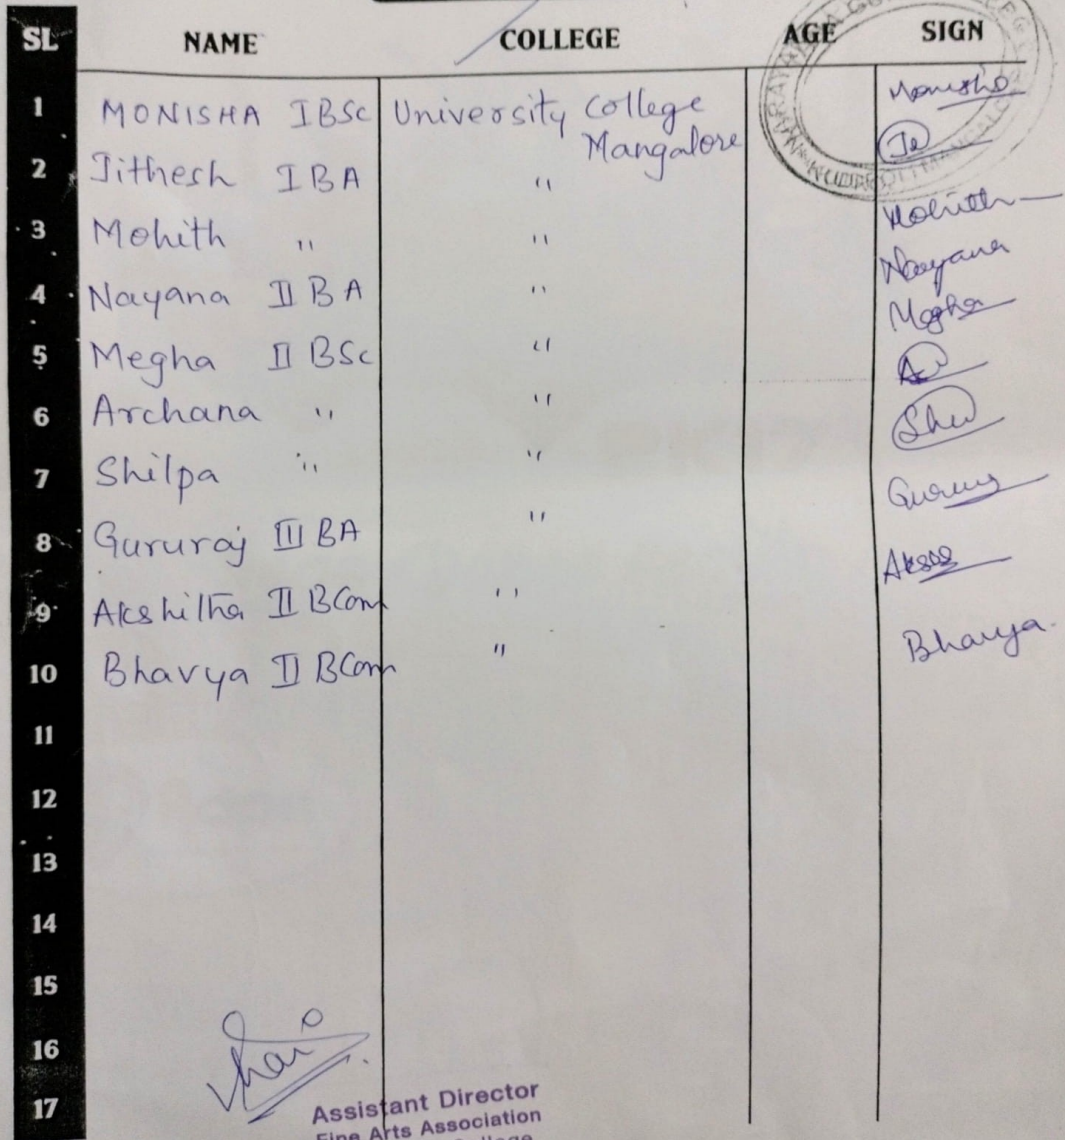 SL NAME COLLEGE AGE SIGN
1 MONISHA I BSc University College Monisha
Mangalore
2 Jithesh I BA " Je
3 Mohith " " Mohith
4 Nayana II BA " Nayana
5 Megha II BSc " Megha
6 Archana " "
7 Shilpa " "
8 Gururaj III BA "
9 Akshitha II BCom "
10 Bhavya II BCom " Bhavya.
11
12
13
14
15
16
17
Assistant Director
Fine Arts Association
College